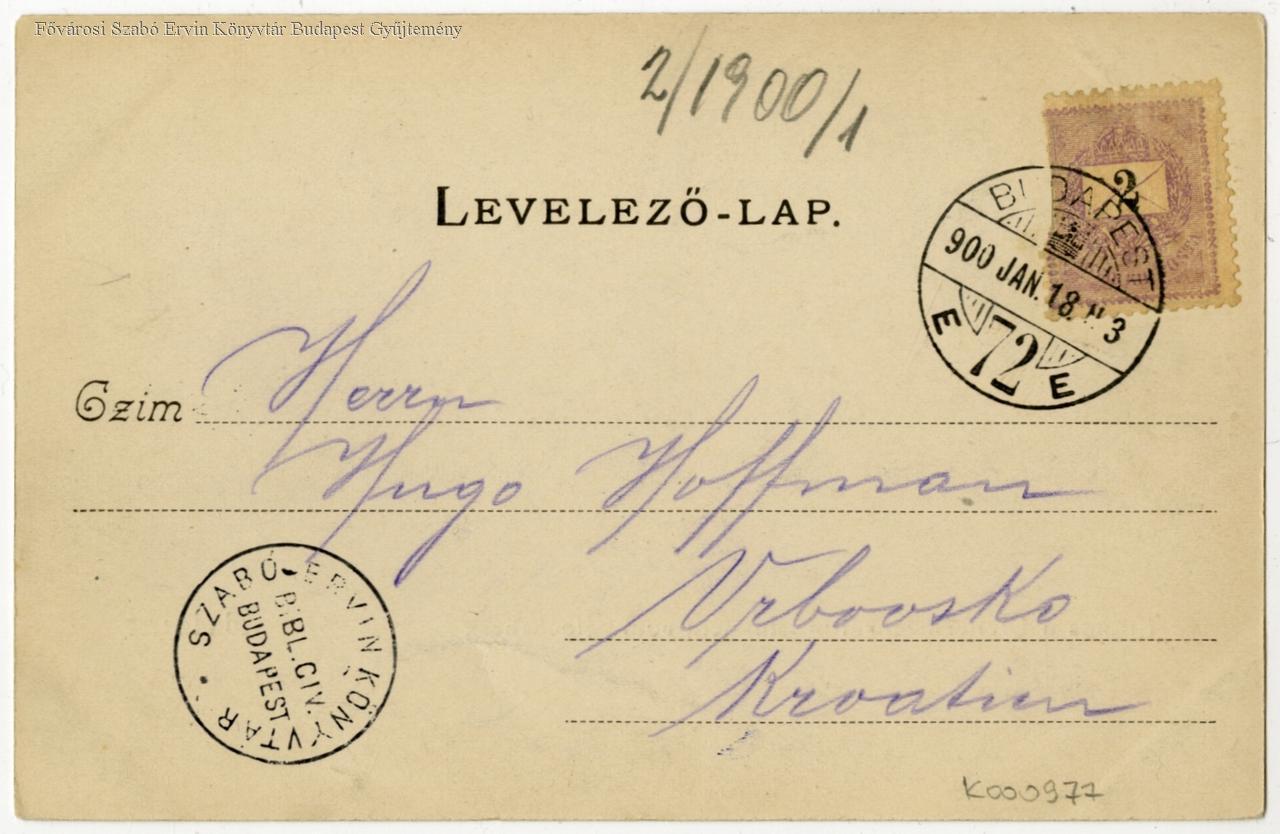 Fővárosi Szabó Ervin Könyvtár Budapest Gyűjtemény
2/1900/1
LEVELEZŐ-LAP.
2
BUDAPEST
900 JAN. 18. N 3
E 72 E
Czim Herrn
Hugo Hoffman
Vrboosko
Kroatien
SZABÓ ERVIN KÖNYVTÁR
BIBL. CIV.
BUDAPEST
K000977